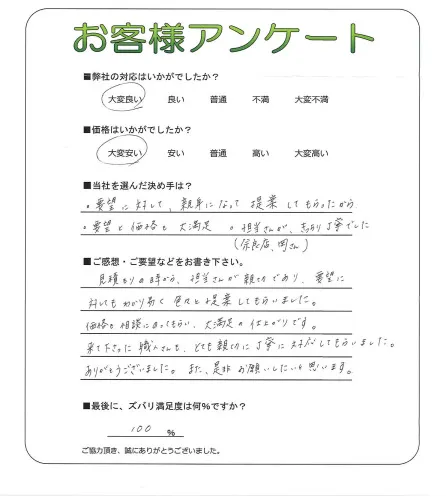 お客様アンケート
■弊社の対応はいかがでしたか？
大変良い 良い 普通 不満 大変不満
■価格はいかがでしたか？
大変安い 安い 普通 高い 大変高い
■当社を選んだ決め手は？
・要望に対して、親身になって提案してもらったから
・要望と価格も大満足 ・担当さんが、丁寧でした
(奈良店、岡さん)
■ご感想・ご要望などをお書き下さい。
見積もりの時から、担当さんが親切であり、要望に
対してもわかり易く色々と提案してもらいました。
価格も相談にのってもらい、大満足の仕上がりです。
来て下さった職人さんも、とても親切に丁寧に対応してもらいました。
ありがとうございました。また、是非お願いしたいと思います。
■最後に、ズバリ満足度は何%ですか？
100 %
ご協力頂き、誠にありがとうございました。